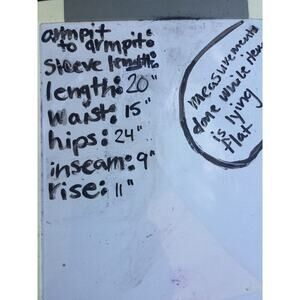 armpit
to armpit:
sleeve length:
length: 20"
waist: 15"
hips: 24"
inseam: 9"
rise: 11"
measurements
done while item
is lying
flat